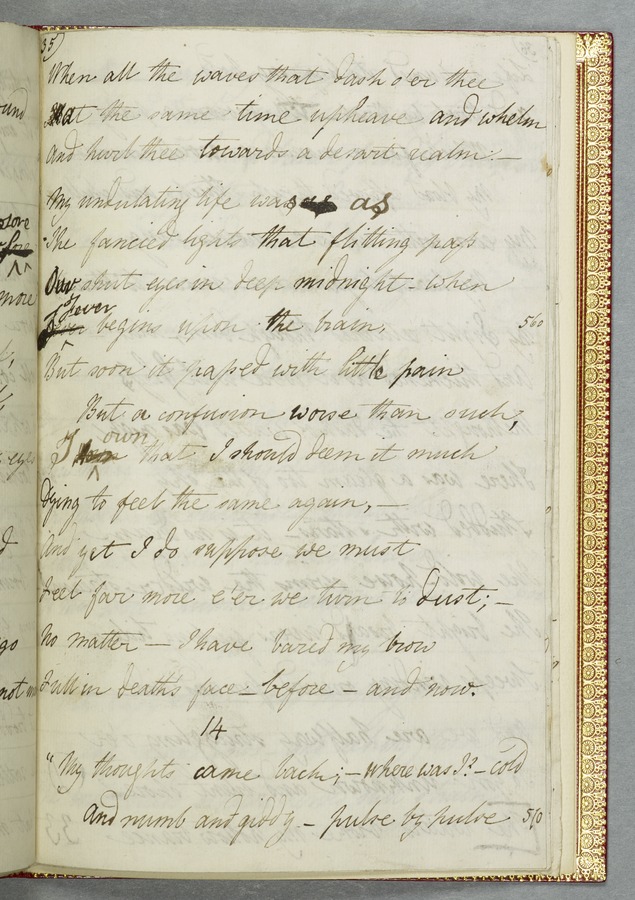 35)
When all the waves that dash o'er thee
At the same time upheave and whelm
And hurl thee towards a desart realm. —
My undulating life was as
The fancied lights that flitting pass
Our shut eyes in deep midnight - when
Fever begins upon the brain,
560
But soon it passed with little pain
But a confusion worse than such,
I own that I should deem it much
Dying to feel the same again, —
And yet I do suppose we must
Feel far more e'er we turn to Dust; —
No matter — I have bared my brow
Full in Death's face — before — and now.
14
"My thoughts came back; — where was I? — cold
And numb and giddy — pulse by pulse
570
more
go
not